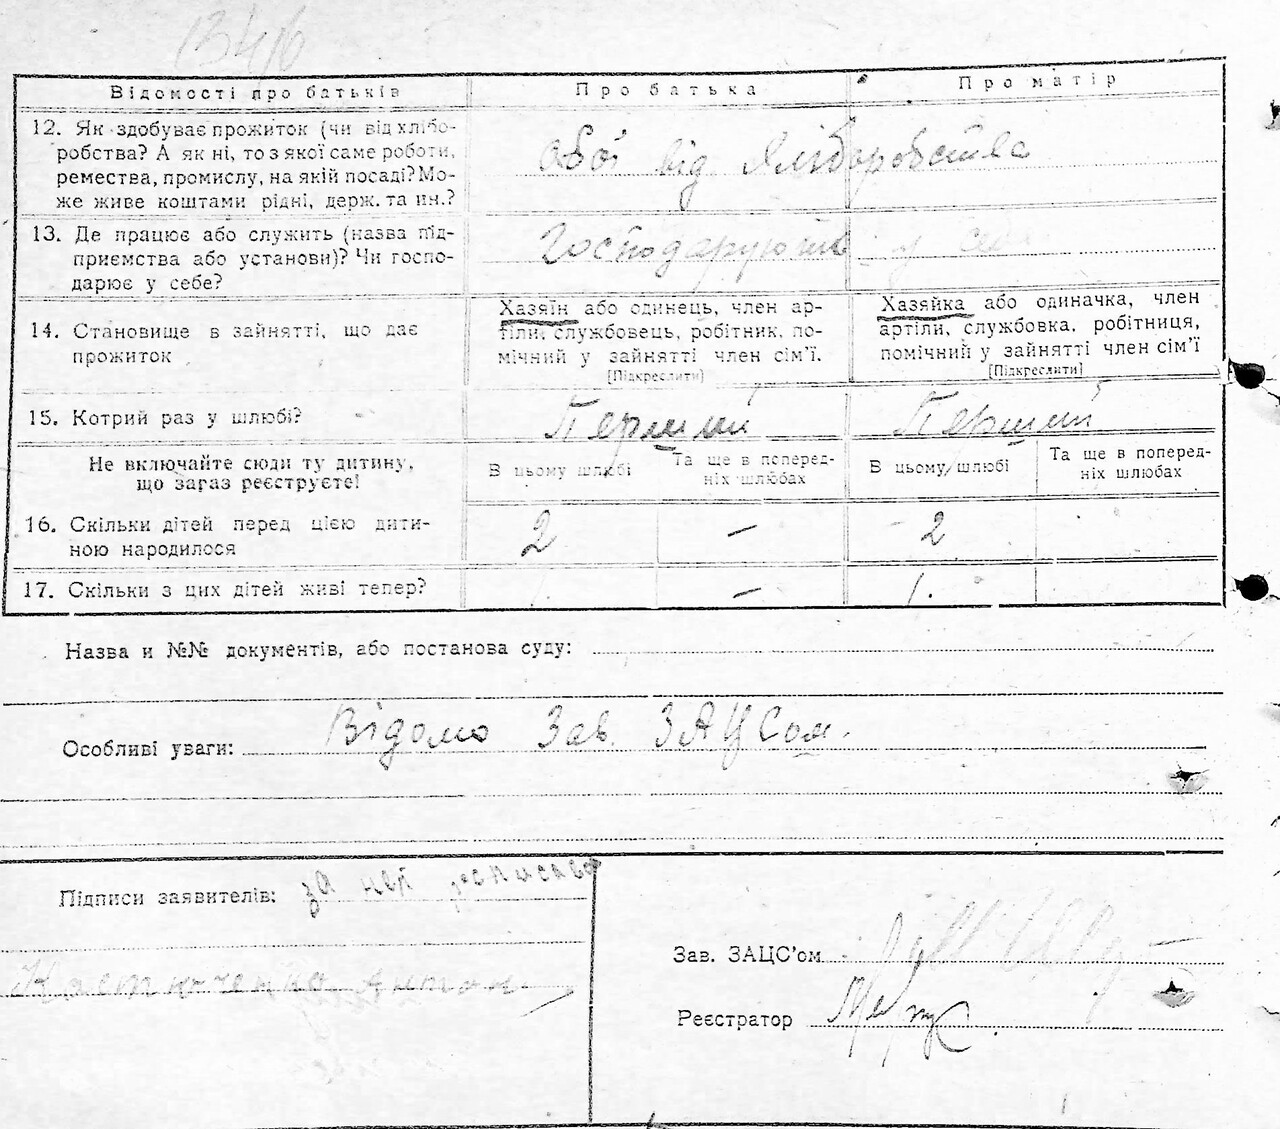 134/6
Відомості про батьків
Про батька
Про матір
12. Як здобуває прожиток (чи від хлібо-
робства? А як ні, то з якої саме роботи,
ремества, промислу, на якій посаді? Мо-
же живе коштами рідні, держ. та ин.?
обої від хліборобства
13. Де працює або служить (назва під-
приємства або установи)? Чи госпо-
дарює у себе?
Господарують у себе
14. Становище в зайнятті, що дає
прожиток
Хазяїн або одинець, член ар-
тіли, службовець, робітник, по-
мічний у зайнятті член сім'ї.
[Підкреслити]
Хазяйка або одиначка, член
артіли, службовка, робітниця,
помічний у зайнятті член сім'ї
[Підкреслити]
15. Котрий раз у шлюбі?
Перший
Перший
Не включайте сюди ту дитину,
що зараз реєструєте!
В цьому шлюбі
Та ще в поперед-
ніх шлюбах
В цьому шлюбі
Та ще в поперед-
ніх шлюбах
16. Скільки дітей перед цією дити-
ною народилося
2
—
2
17. Скільки з цих дітей живі тепер?
—
1.
Назва и №№ документів, або постанова суду:
Особливі уваги: Відомо Зав. ЗАЦСом.
Підписи заявителів: за неї росписався
Костюченко Антон
Зав. ЗАЦС'ом
Реєстратор